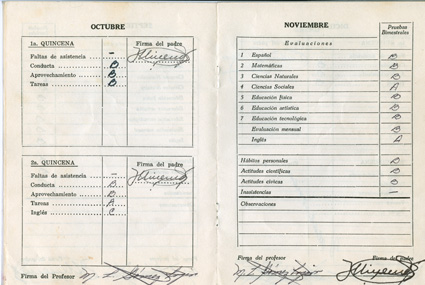 OCTUBRE
1a. QUINCENA
Firma del padre
Faltas de asistencia –
Conducta B
Aprovechamiento B
Tareas B
2a. QUINCENA
Firma del padre
Faltas de asistencia –
Conducta B
Aprovechamiento B
Tareas A
Inglés C
Firma del Profesor
NOVIEMBRE
Pruebas Bimestrales
Evaluaciones
1 Español B
2 Matemáticas B
3 Ciencias Naturales B
4 Ciencias Sociales A
5 Educación física B
6 Educación artística B
7 Educación tecnológica B
Evaluación mensual B
Inglés A
Hábitos personales B
Actitudes científicas B
Actitudes cívicas B
Inasistencias –
Observaciones
Firma del profesor
Firma del padre